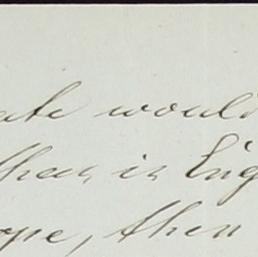 ate would
than in Eng
ope, then